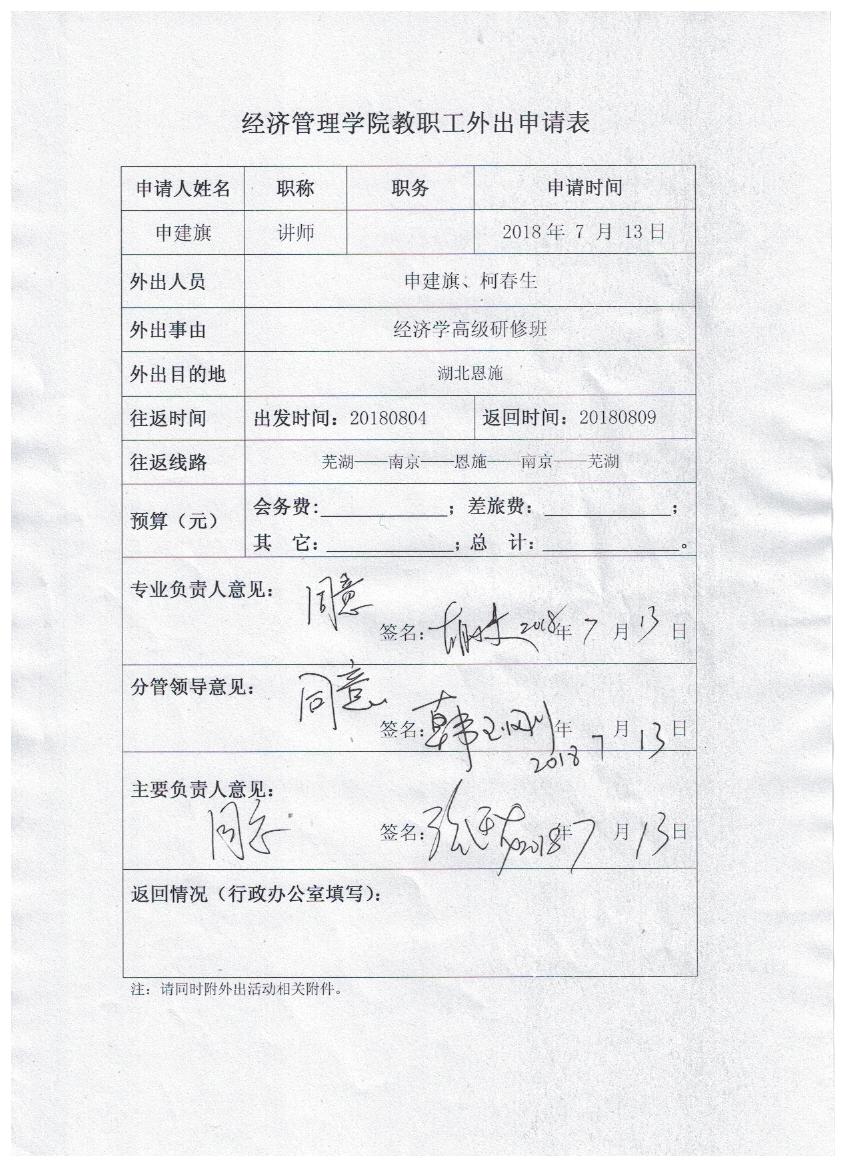 经济管理学院教职工外出申请表
申请人姓名 职称 职务 申请时间
申建旗 讲师 2018年 7 月 13日
外出人员 申建旗、柯春生
外出事由 经济学高级研修班
外出目的地 湖北恩施
往返时间 出发时间：20180804 返回时间：20180809
往返线路 芜湖——南京——恩施——南京——芜湖
预算（元） 会务费:____________；差旅费：____________；
其　它：____________；总　计：_____________。
专业负责人意见： 同意
签名： 2018年 7 月 13 日
分管领导意见： 同意
签名：韩玉刚 年 月 日
2018 7 13
主要负责人意见：
同意
签名： 2018年 7 月 13日
返回情况（行政办公室填写）：
注：请同时附外出活动相关附件。